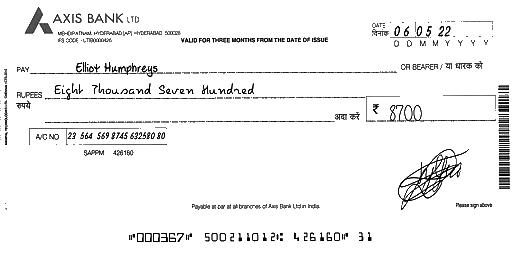 AXIS BANK LTD
MEHDIPATNAM, HYDERABAD (AP) HYDERABAD 500028
IFS CODE - UTIB0000426
VALID FOR THREE MONTHS FROM THE DATE OF ISSUE
DATE
दिनांक 06 05 22
D D M M Y Y Y Y
PAY Elliot Humphreys OR BEARER / या धारक को
RUPEES Eight Thousand Seven Hundred
रुपये
अदा करें ₹ 8700
A/C NO 23 564 569 8745 632580 80
SAPPM 426160
Payable at par at all branches of Axis Bank Ltd in India.
Please sign above
⑈000367⑈ 500211012⑆ 426160⑈ 31